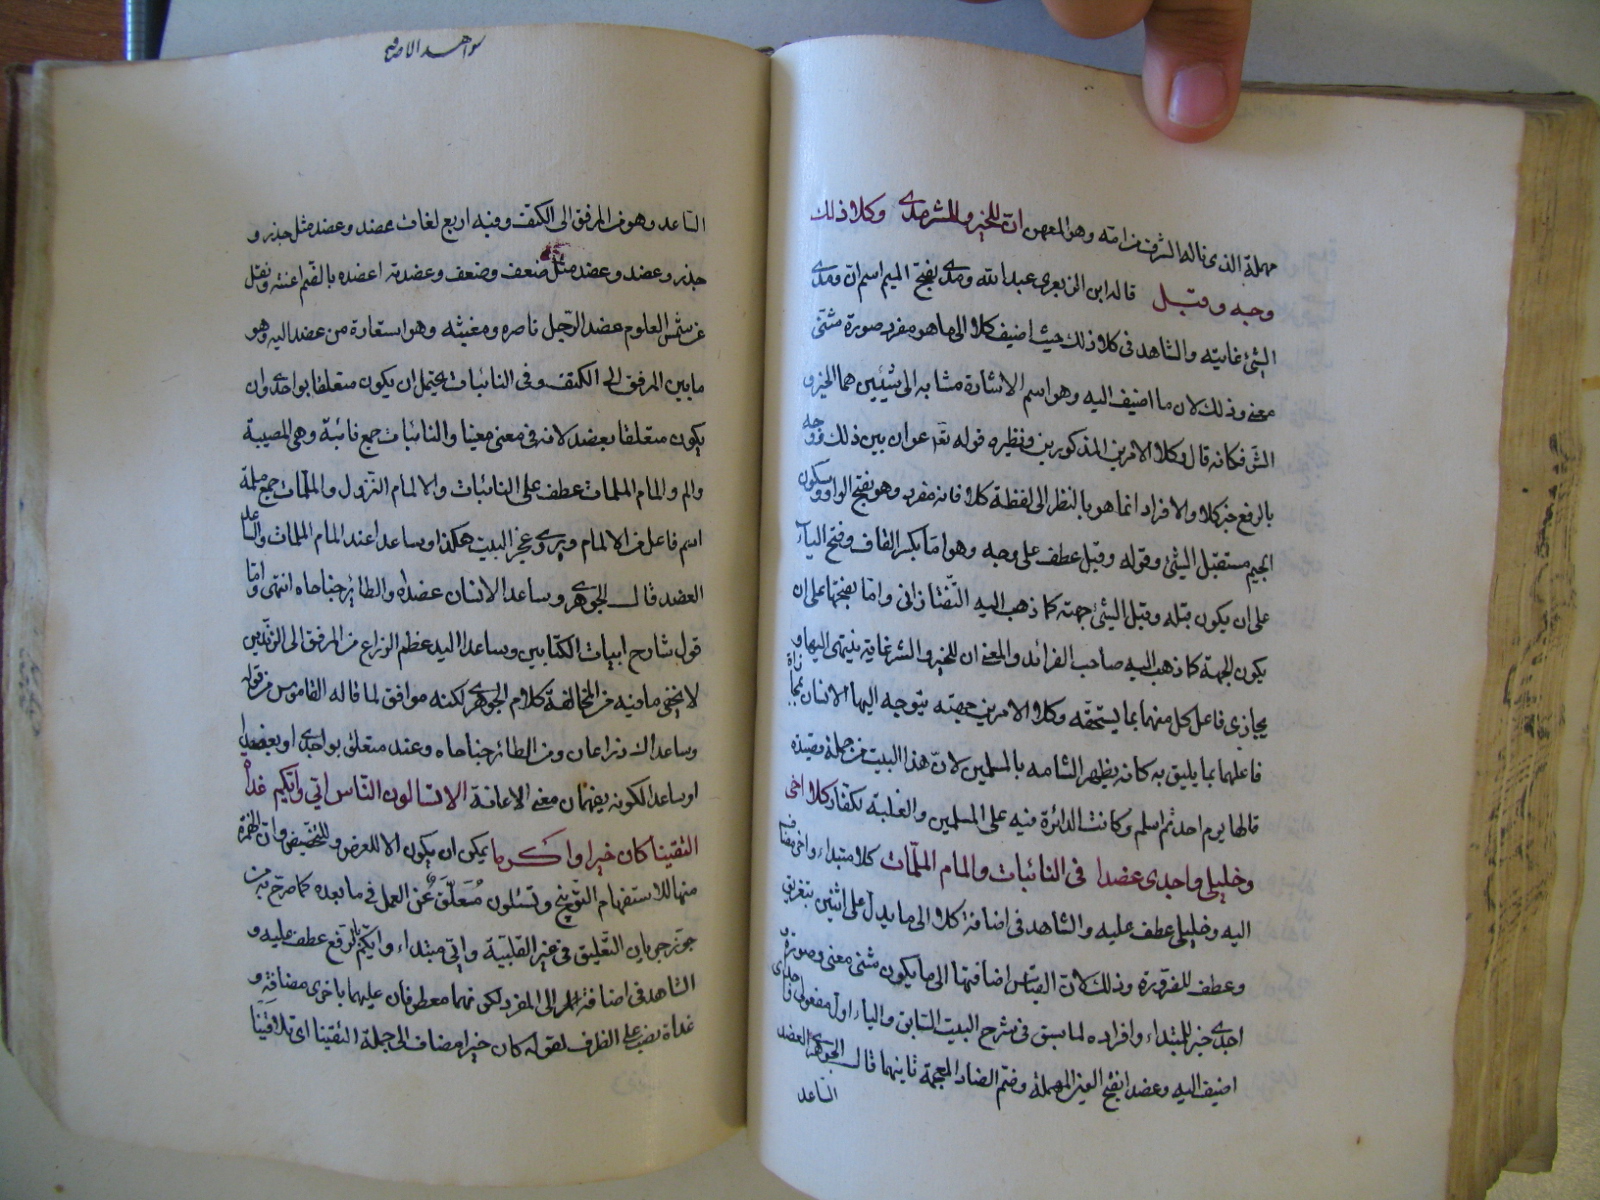 مهملة الذى ناله الشرف من امته وهو المعهن ان للخير وللشر مدى وكلا ذلك
وجه وقبل قاله ابن الزبعرى عبد الله ومدى بفتح الميم اسم ان ومدى
الشئ غايته والشاهد فى كلا ذلك حيث اضيف كلا الى ما هو مفرد صورة مثنى
معنى وذلك لان ما اضيف اليه وهو اسم الاشارة مشابه الى شيئين هما الخير و
الشر فكانه قال وكلا الامرين المذكورين ونظيره قوله تعا عوان بين ذلك ووجه
بالرفع خبر كلا والافراد انما هو بالنظر الى لفظة كلا فانه مفرد وهو بفتح الواو وسكون
الجيم مستقبل الشئ وقوله وقبل عطف على وجه وهو اما بكسر القاف وفتح الباء
على ان يكون قبله وقبل الشئ جهته كما ذهب اليه التفتازانى واما بفتحها على ان
يكون الجهة كما ذهب اليه صاحب الفرائد والمعنى ان للخير والشر غاية ينتهى اليها و
يجازى فاعل كل منهما بما يستحقه وكلا الامرين جهته يتوجه اليها الانسان
فاعلهما بما يليق به كانه يظهر الشامه بالمسلمين لان هذا البيت من جملة قصيدة
قالها يوم احد ثم اسلم وكانت الدائرة فيه على المسلمين والغلبة لكفار كلا اخى
وخليلى واجدى عضدا فى النائبات والمام الملمات كلا مبتداء واخى مضاف
اليه وخليلى عطف عليه والشاهد فى اضافة كلا الى ما يدل على اثنين بتفريق
وعطف للضرورة وذلك لان القياس اضافتها الى ما يكون مثنى معنى وصورة و
اجدى خبر للمبتداء وافراده لما سبق فى شرح البيت السابق والياء اول مفعولى
اضيف اليه وعضدا بفتح العين المهملة وضم الضاد المعجمة ثانيهما قال الجوهرى العضد
الساعد
شواهد الاضافة
الساعد وهو من المرفق الى الكتف وفيه اربع لغات عضد وعضد مثل حذر و
حذر وعضد وعضد مثل ضعف وضعف وعضدته اعضده بالضم اعنته ونقل
عن شمس العلوم عضد الرجل ناصره ومغيثه وهو استعارة من عضد اليد وهو
ما بين المرفق الى الكتف وفى النائبات يحتمل ان يكون متعلقا بواجدى وان
يكون متعلقا بعضد لانه فى معنى معينا والنائبات جمع نائبة وهى المصيبة
والم والمام الملمات عطف على النائبات والالمام النزول والملمات جمع ملمة
اسم فاعل من الالمام ويروى عجز البيت هكذا وساعدا عند المام الملمات والساعد
العضد قال الجوهرى وساعد الانسان عضده والطائر جناحاه انتهى واما
قول شارح ابيات الكتابين وساعد اليد عظم الزراع من المرفق الى الزندين
لا يخفى ما فيه من المخالفة كلام الجوهرى لكنه موافق لما قاله القاموس من قوله
وساعداك ذراعان ومن الطائر جناحاه وعند متعلق بواجدى او بعضدا
او ساعدا لكونه يفهمان معنى الاعانة الا تسالون الناس انى وايكم غداة
التقينا كان خيرا واكرما يمكن ان يكون الا للعرض وللتحضيض وان الهمزة
منها للاستفهام التوبيخ وتسئلون معلق عن العمل فى ما بعده كما صرح به من
جوز جريان التعليق فى غير القلبية وانى مبتداء وايكم بالرفع عطف عليه و
الشاهد فى اضافة الى المفرد لكن نهما معطوفان عليهما باخرى مضافة و
غداة نصب على الظرف لقوله كان خيرا مضاف الى جملة التقينا اى تلاقينا